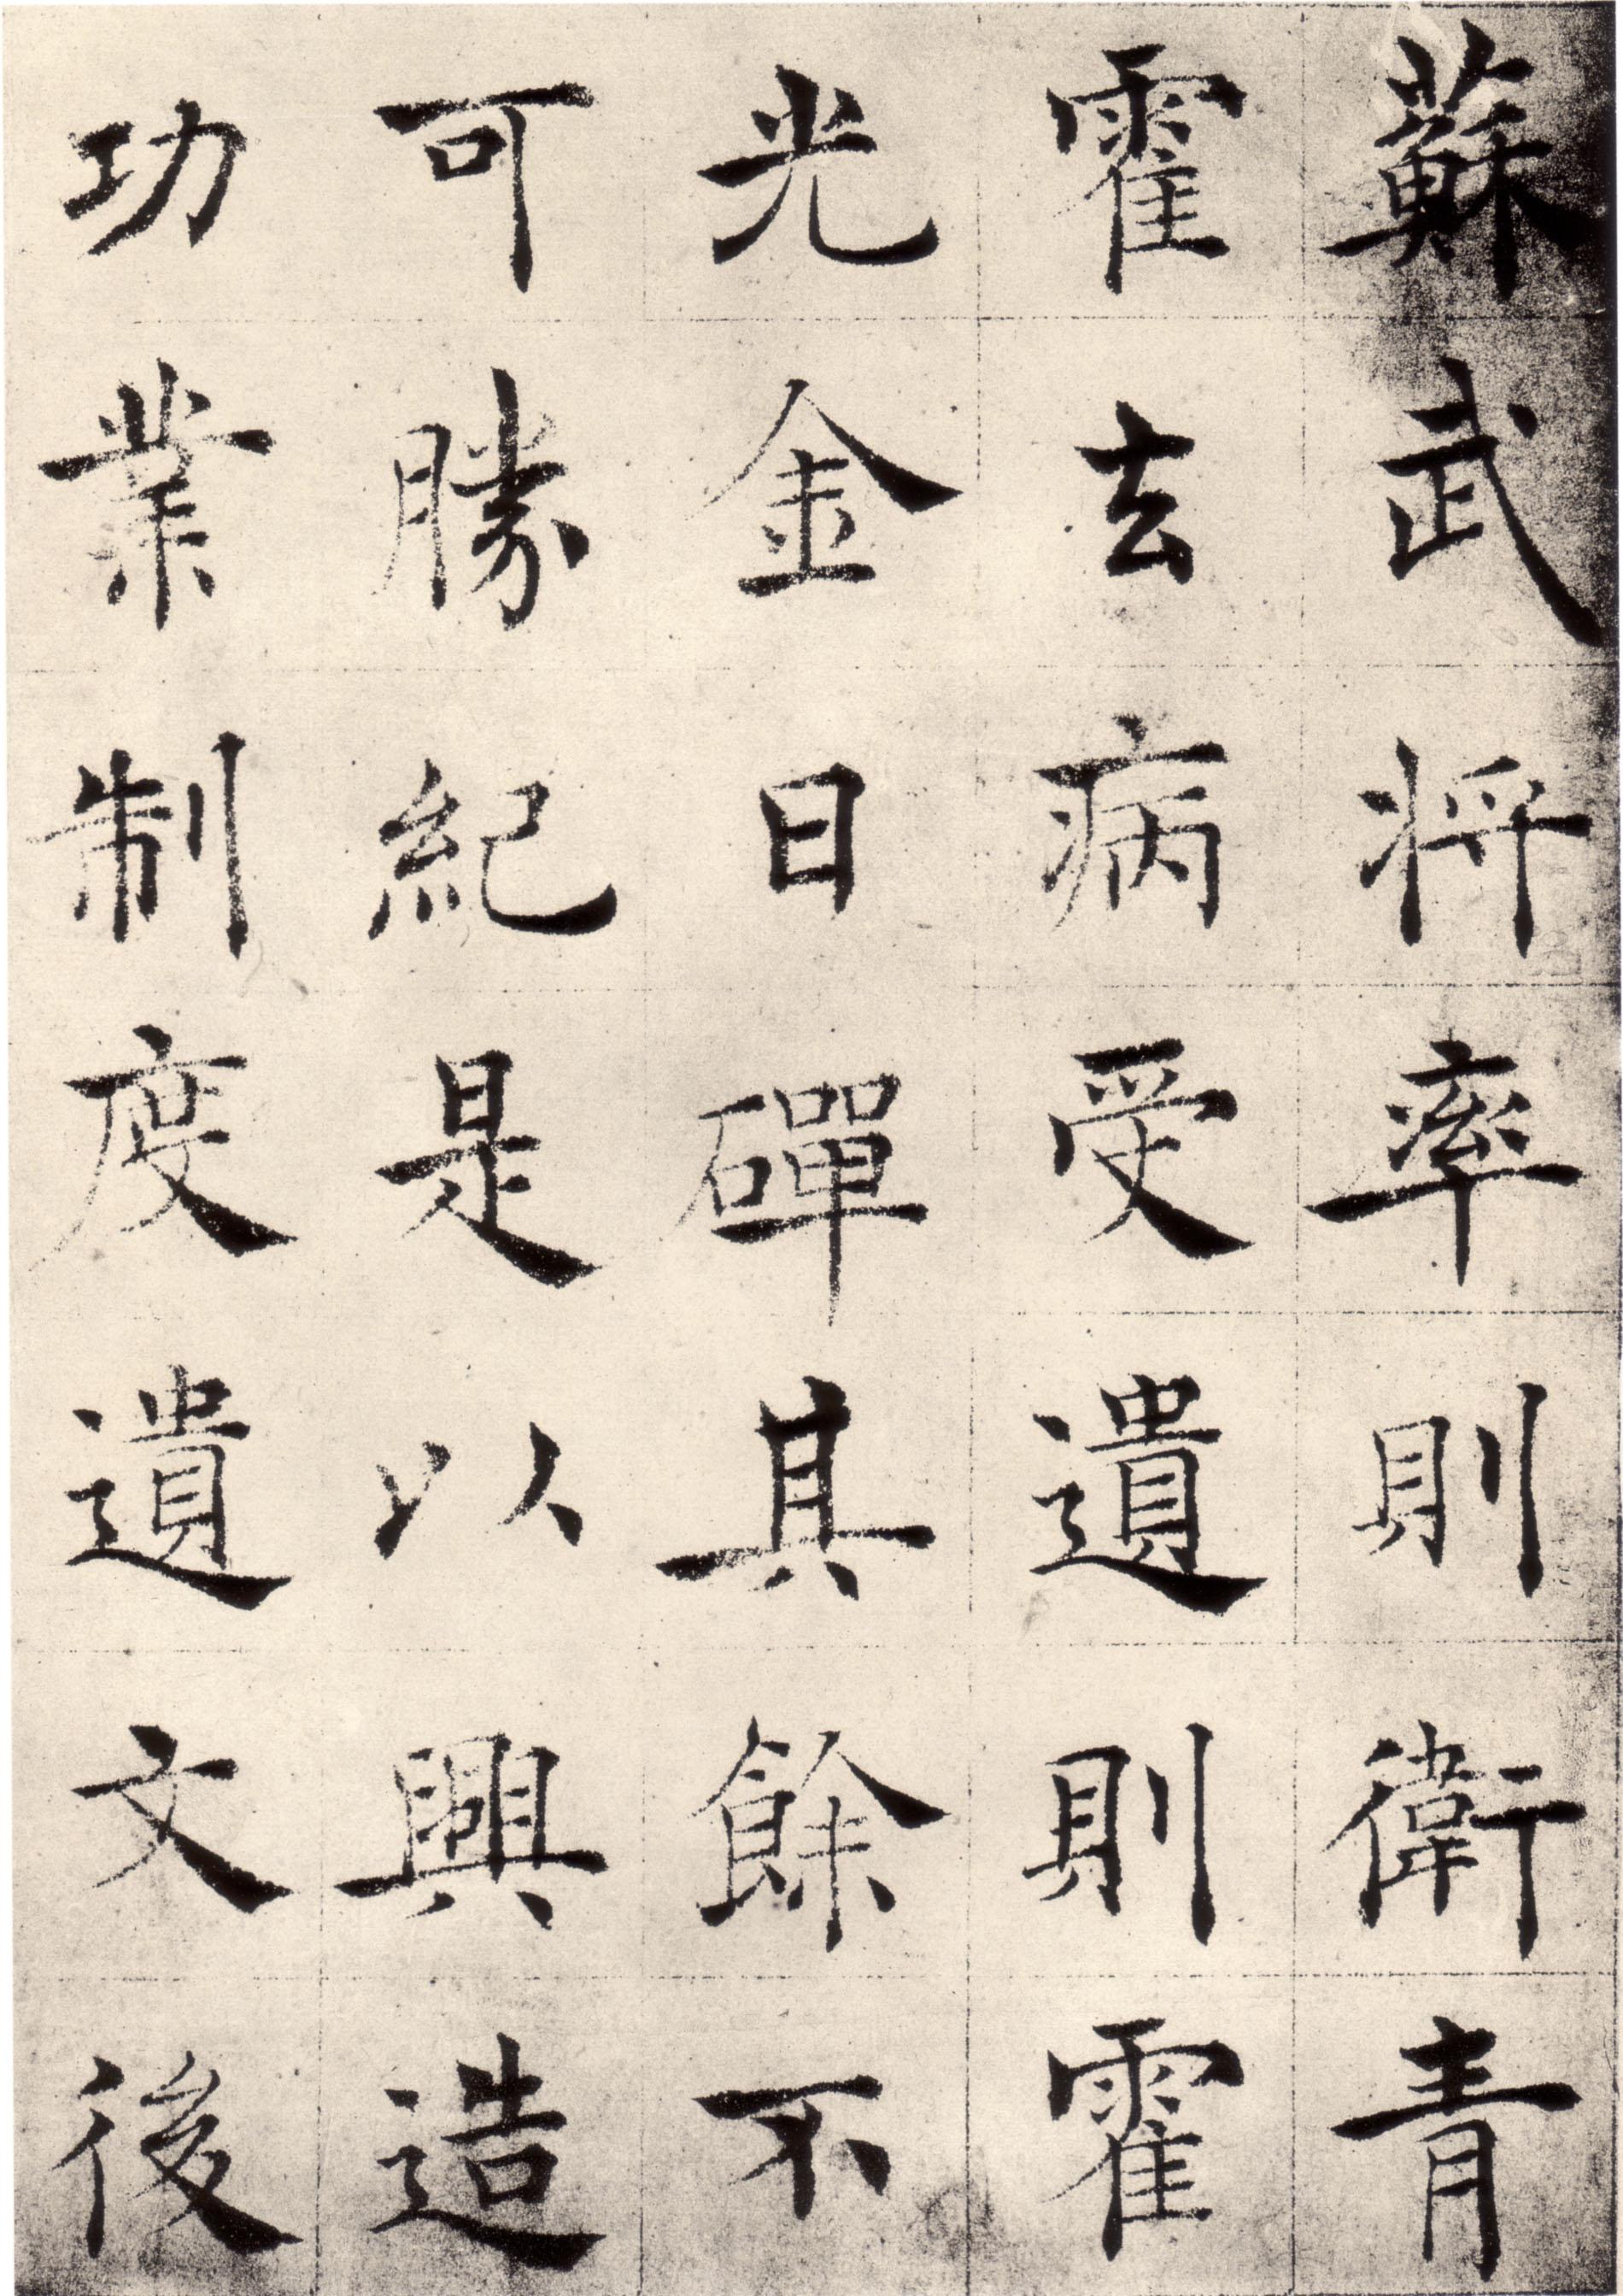 蘇武将率則衛青
霍去病受遺則霍
光金日磾其餘不
可勝紀是以興造
功業制度遺文後